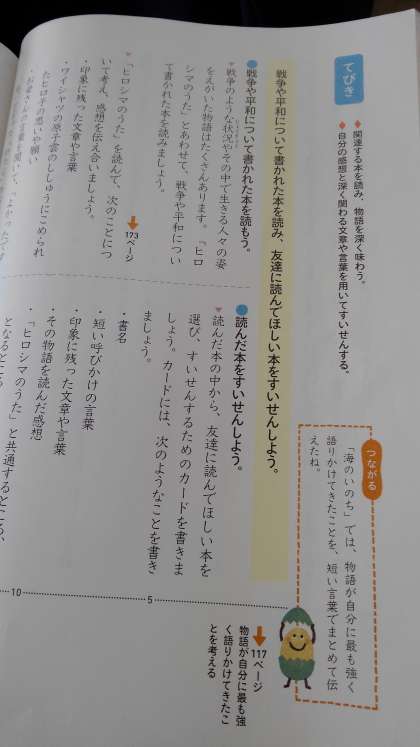 てびき
◆関連する本を読み、物語を深く味わう。
◆自分の感想と深く関わる文章や言葉を用いてすいせんする。
つながる
「海のいのち」では、物語が自分に最も強く
語りかけてきたことを、短い言葉でまとめて伝
えたね。
117ページ
物語が自分に最も強
く語りかけてきたこ
とを考える
戦争や平和について書かれた本を読み、友達に読んでほしい本をすいせんしよう。
戦争や平和について書かれた本を読もう。
▼戦争のような状況やその中で生きる人々の姿
をえがいた物語はたくさんあります。「ヒロ
シマのうた」とあわせて、戦争や平和につい
て書かれた本を読みましょう。
173ページ
▼「ヒロシマのうた」を読んで、次のことにつ
いて考え、感想を伝え合いましょう。
・印象に残った文章や言葉
・ワイシャツの原子雲のししゅうにこめられ
たヒロ子の思いや願い
読んだ本をすいせんしよう。
▼読んだ本の中から、友達に読んでほしい本を
選び、すいせんするためのカードを書きま
しょう。カードには、次のようなことを書き
ましょう。
・書名
・短い呼びかけの言葉
・印象に残った文章や言葉
・その物語を読んだ感想
・「ヒロシマのうた」と共通するところ、
となるところ
5
10